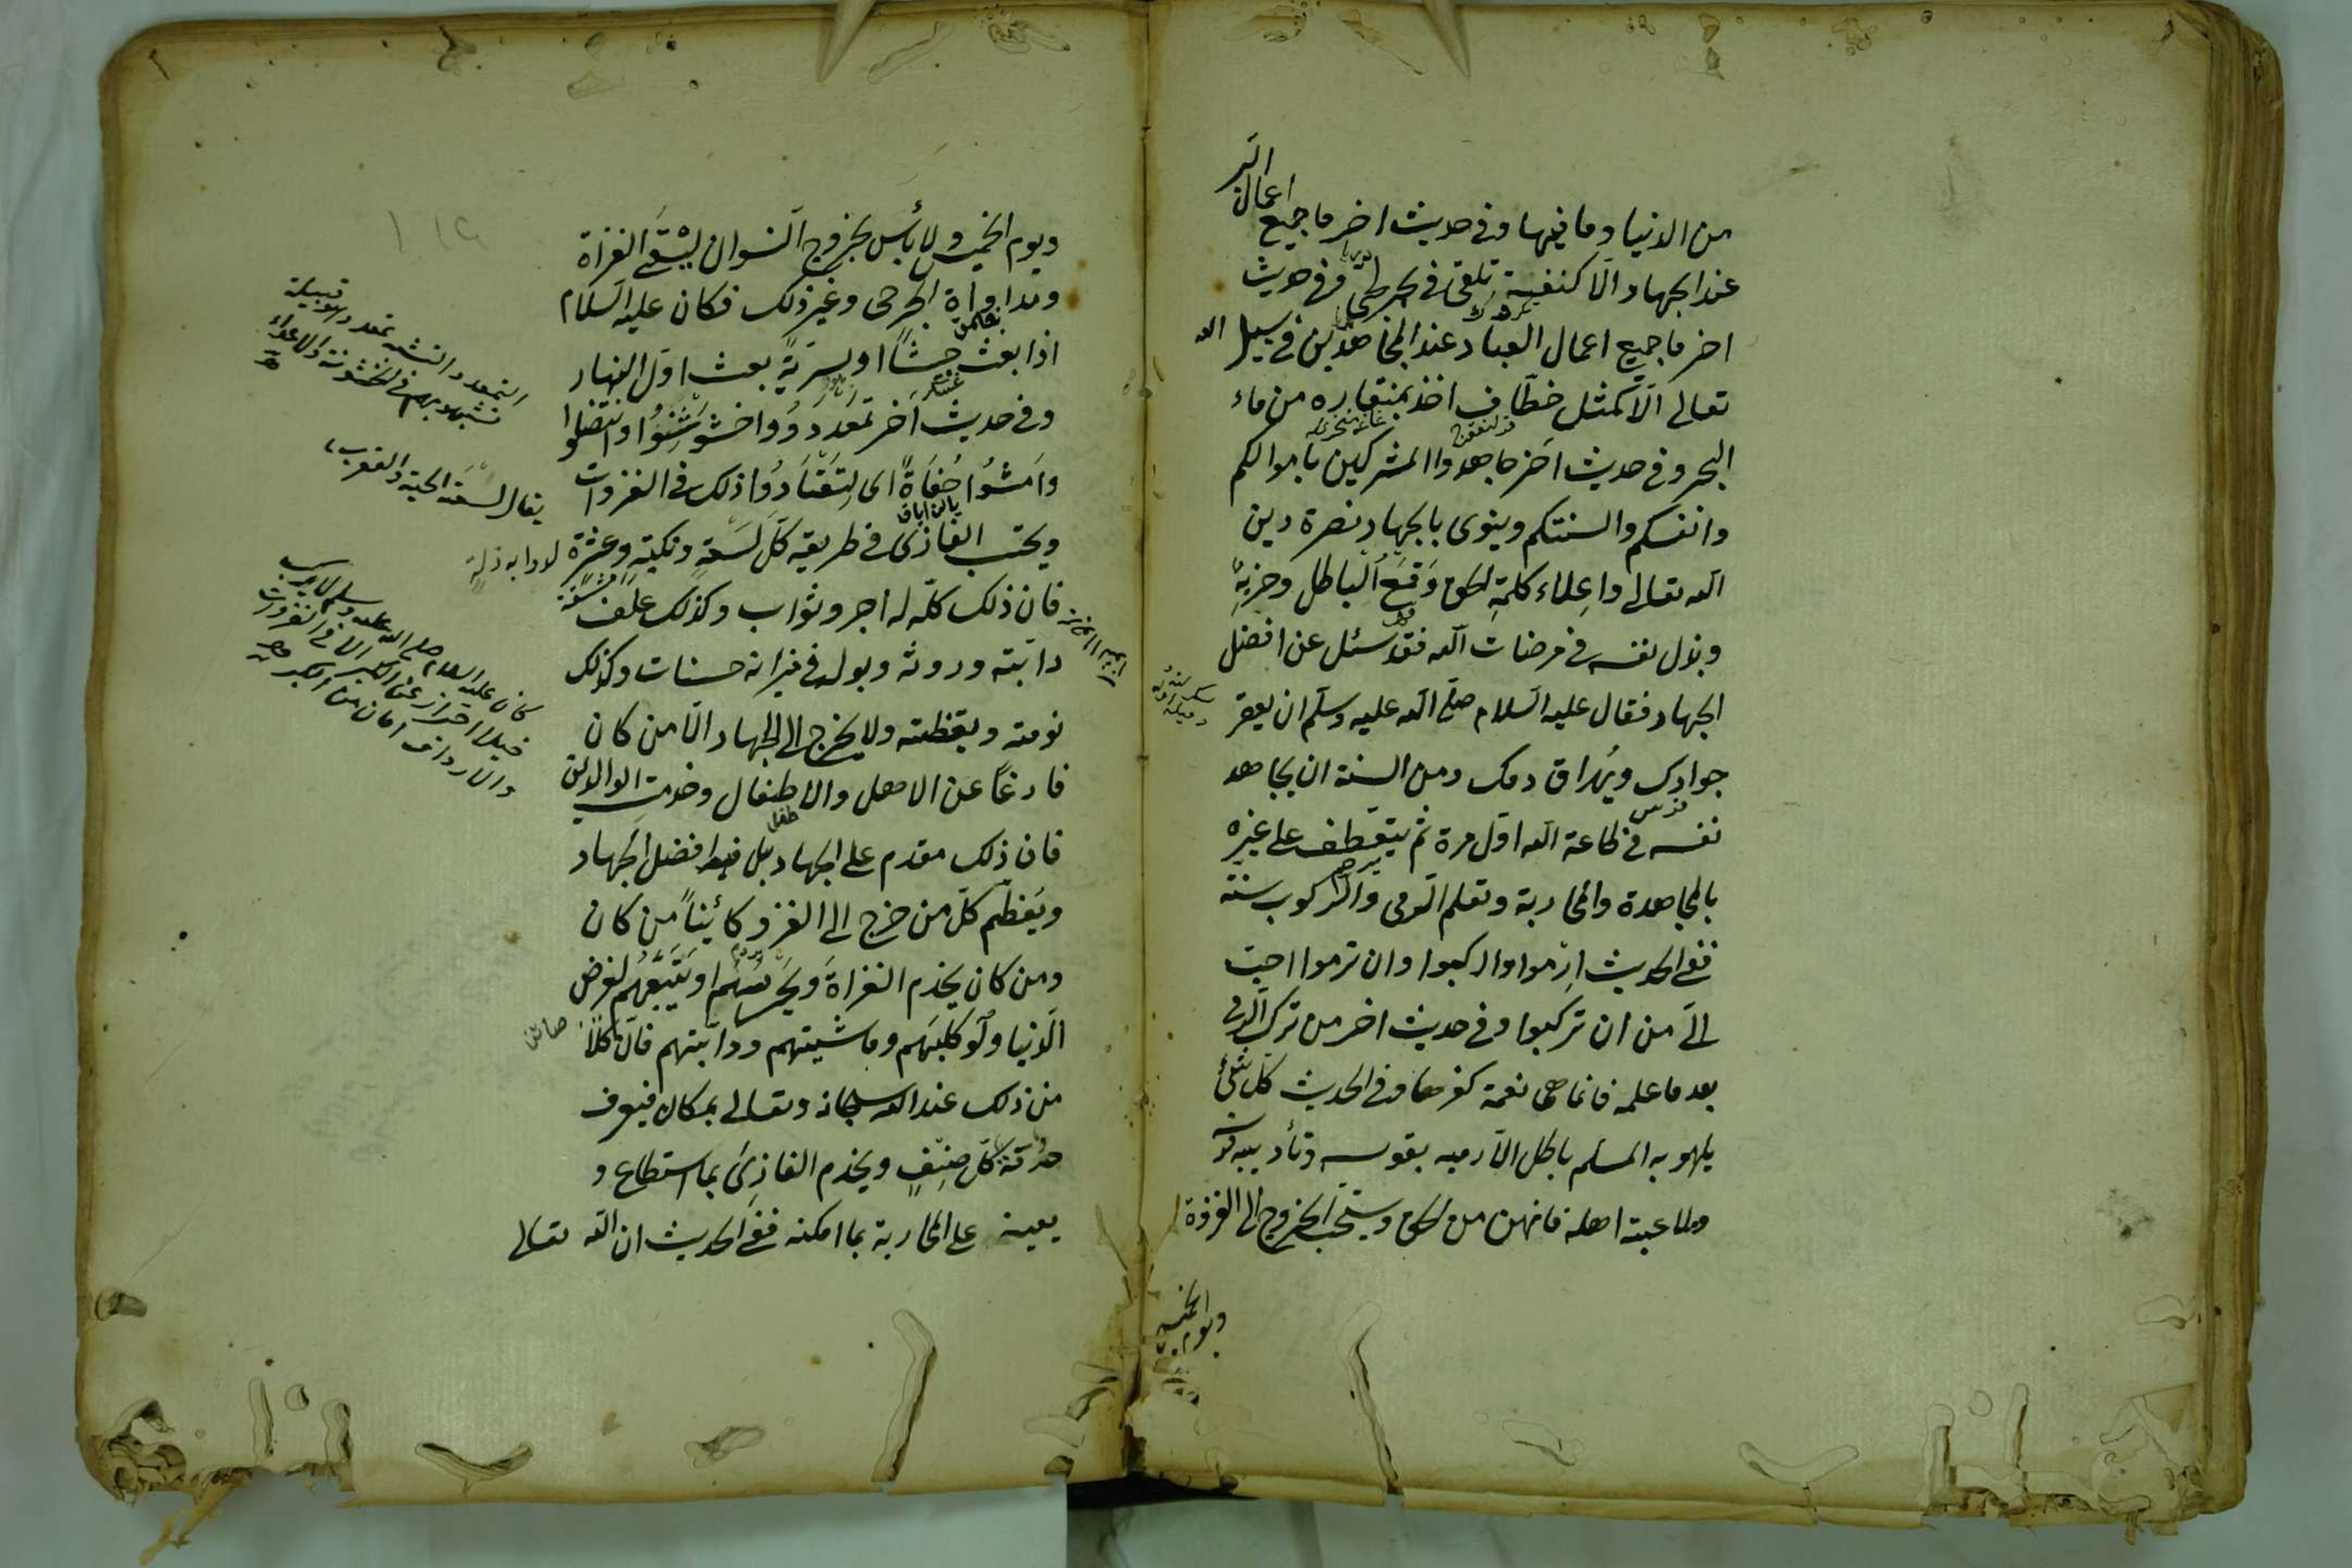 من الدنيا وما فيها وفي حديث اخر ما جميع اعمال البر
عند الجهاد الا كنفثة تلقى في بحر لجي وفي حديث
اخر ما جميع اعمال العباد عند المجاهدين في سبيل الله
تعالى الا كمثل خطاف اخذ بمنقاره من ماء
البحر وفي حديث اخر جاهدوا المشركين باموالكم
وانفسكم والسنتكم وينوي بالجهاد نصرة دين
الله تعالى واعلاء كلمة الحق وقمع الباطل وحزبه
وبذل نفسه في مرضات الله فقد سئل عن افضل
الجهاد فقال عليه السلام صلى الله عليه وسلم ان يعقر
جوادك ويهراق دمك ومن السنة ان يجاهد
نفسه في طاعة الله اول مرة ثم يتعطف على غيره
بالمجاهدة والمحاربة وتعلم الرمي والركوب سنة
ففي الحديث ارموا واركبوا وان ترموا احب
الي من ان تركبوا وفي حديث اخر من ترك الرمي
بعد ما علمه فانما هي نعمة كفرها وفي الحديث كل شئ
يلهو به المسلم باطل الا رميه بقوسه وتأديبه فرسه
وملاعبته اهله فانهن من الحق ويستحب الخروج الى الغزوة
ويوم الخميس
ويوم الخميس ولا بأس بخروج النسوان ليسقى الغزاة
ومداواة الجرحى وغير ذلك فكان عليه السلام
اذا بعث جيشا او سرية بعث اول النهار
وفي حديث اخر تمعددوا واخشوشنوا وانتضلوا
وامشوا حفاة اى لتعتادوا ذلك في الغزوات
ويحتسب الغازى في طريقه كل لسعة ونكبة وعثرة
فان ذلك كله له اجر وثواب وكذلك علف
دابته وروثه وبوله في ميزانه حسنات وكذلك
نومته ويقظته ولا يخرج الى الجهاد الا من كان
فارغا عن الاهل والاطفال وخدمت الوالدين
فان ذلك مقدم على الجهاد بل هو افضل الجهاد
ويعظم كل من خرج الى الغزو كائنا من كان
ومن كان يخدم الغزاة ويحرسهم او يتبعهم لغرض
الدنيا ولو كلبهم وماشيتهم ودابتهم فان كلا
من ذلك عند الله سبحانه وتعالى بمكان فيعرف
حرمة كل صنف ويخدم الغازى بما استطاع و
يعينه على المحاربة بما امكنه ففي الحديث ان الله تعالى
التمعدد التشبه بمعد وهو قبيلة
يقال لسعته الحية والعقرب